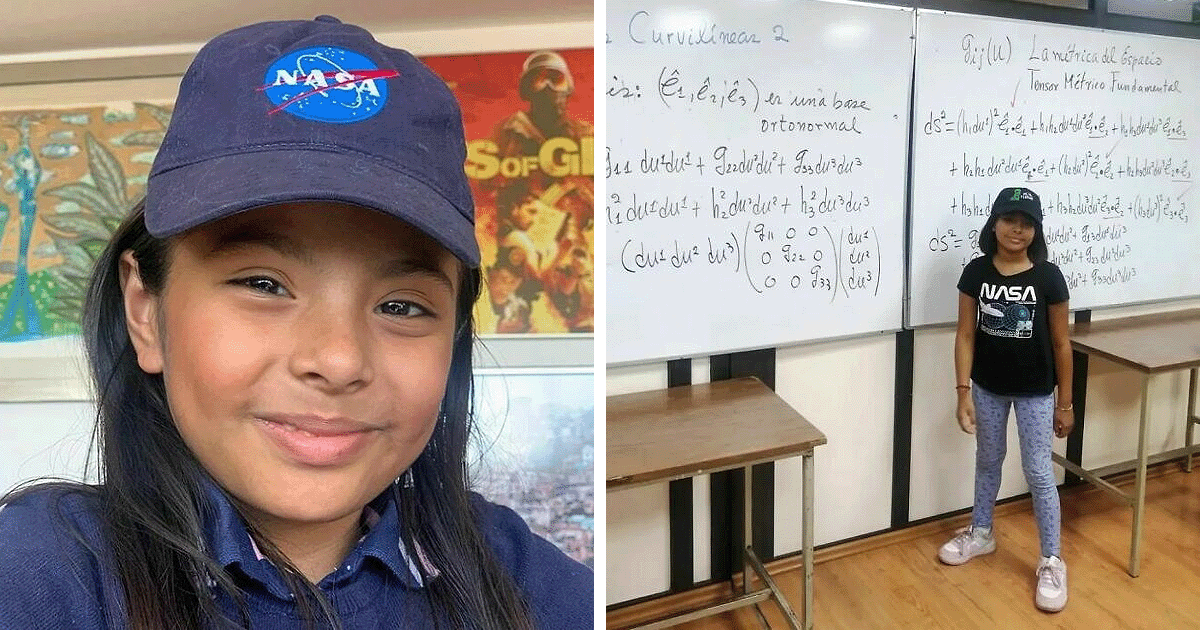 NASA
S OF GI
Curvilíneas 2
(ê₁, ê₂, ê₃) es una base
ortonormal
g₁₁ du¹du¹ + g₂₂du²du² + g₃₃du³du³
h₁²du¹du¹ + h₂²du²du² + h₃²du³du³
(du¹ du² du³) (g₁₁ 0 0) (du¹)
(0 g₂₂ 0) (du²)
(0 0 g₃₃) (du³)
gᵢⱼ(u) La métrica del Espacio
Tensor Métrico Fundamental
ds² = (h₁du¹)² ê₁•ê₁ + h₁h₂du¹du² ê₁•ê₂ + h₁h₃du¹du³ ê₁•ê₃
+ h₂h₁du²du¹ ê₂•ê₁ + (h₂du²)² ê₂•ê₂ + h₂h₃du²du³ ê₂•ê₃
+ h₃h₁ + h₃h₂du³du² ê₃•ê₂ + (h₃du³)² ê₃•ê₃
ds² = du¹du² + g₁₃du¹du³
du²du² + g₂₃du²du³
du² + g₃₃du³du³
NASA